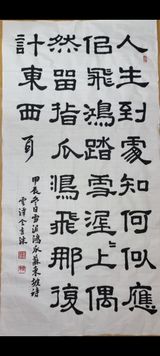 人生到處知何似應
佀飛鴻踏雪泥上偶
然留指爪鴻飛那復
計東西
甲辰冬日雪泥鴻爪蘇東坡詩